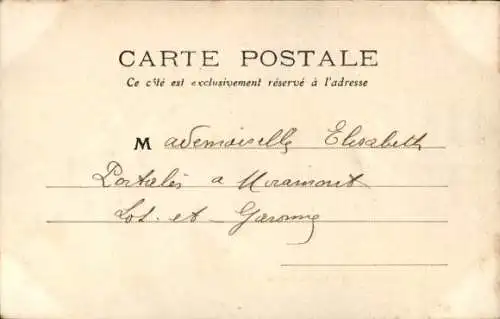 CARTE POSTALE
Ce côté est exclusivement réservé à l'adresse
Mademoiselle Elisabeth
Portalès a Miramont
Lot. et Garonne